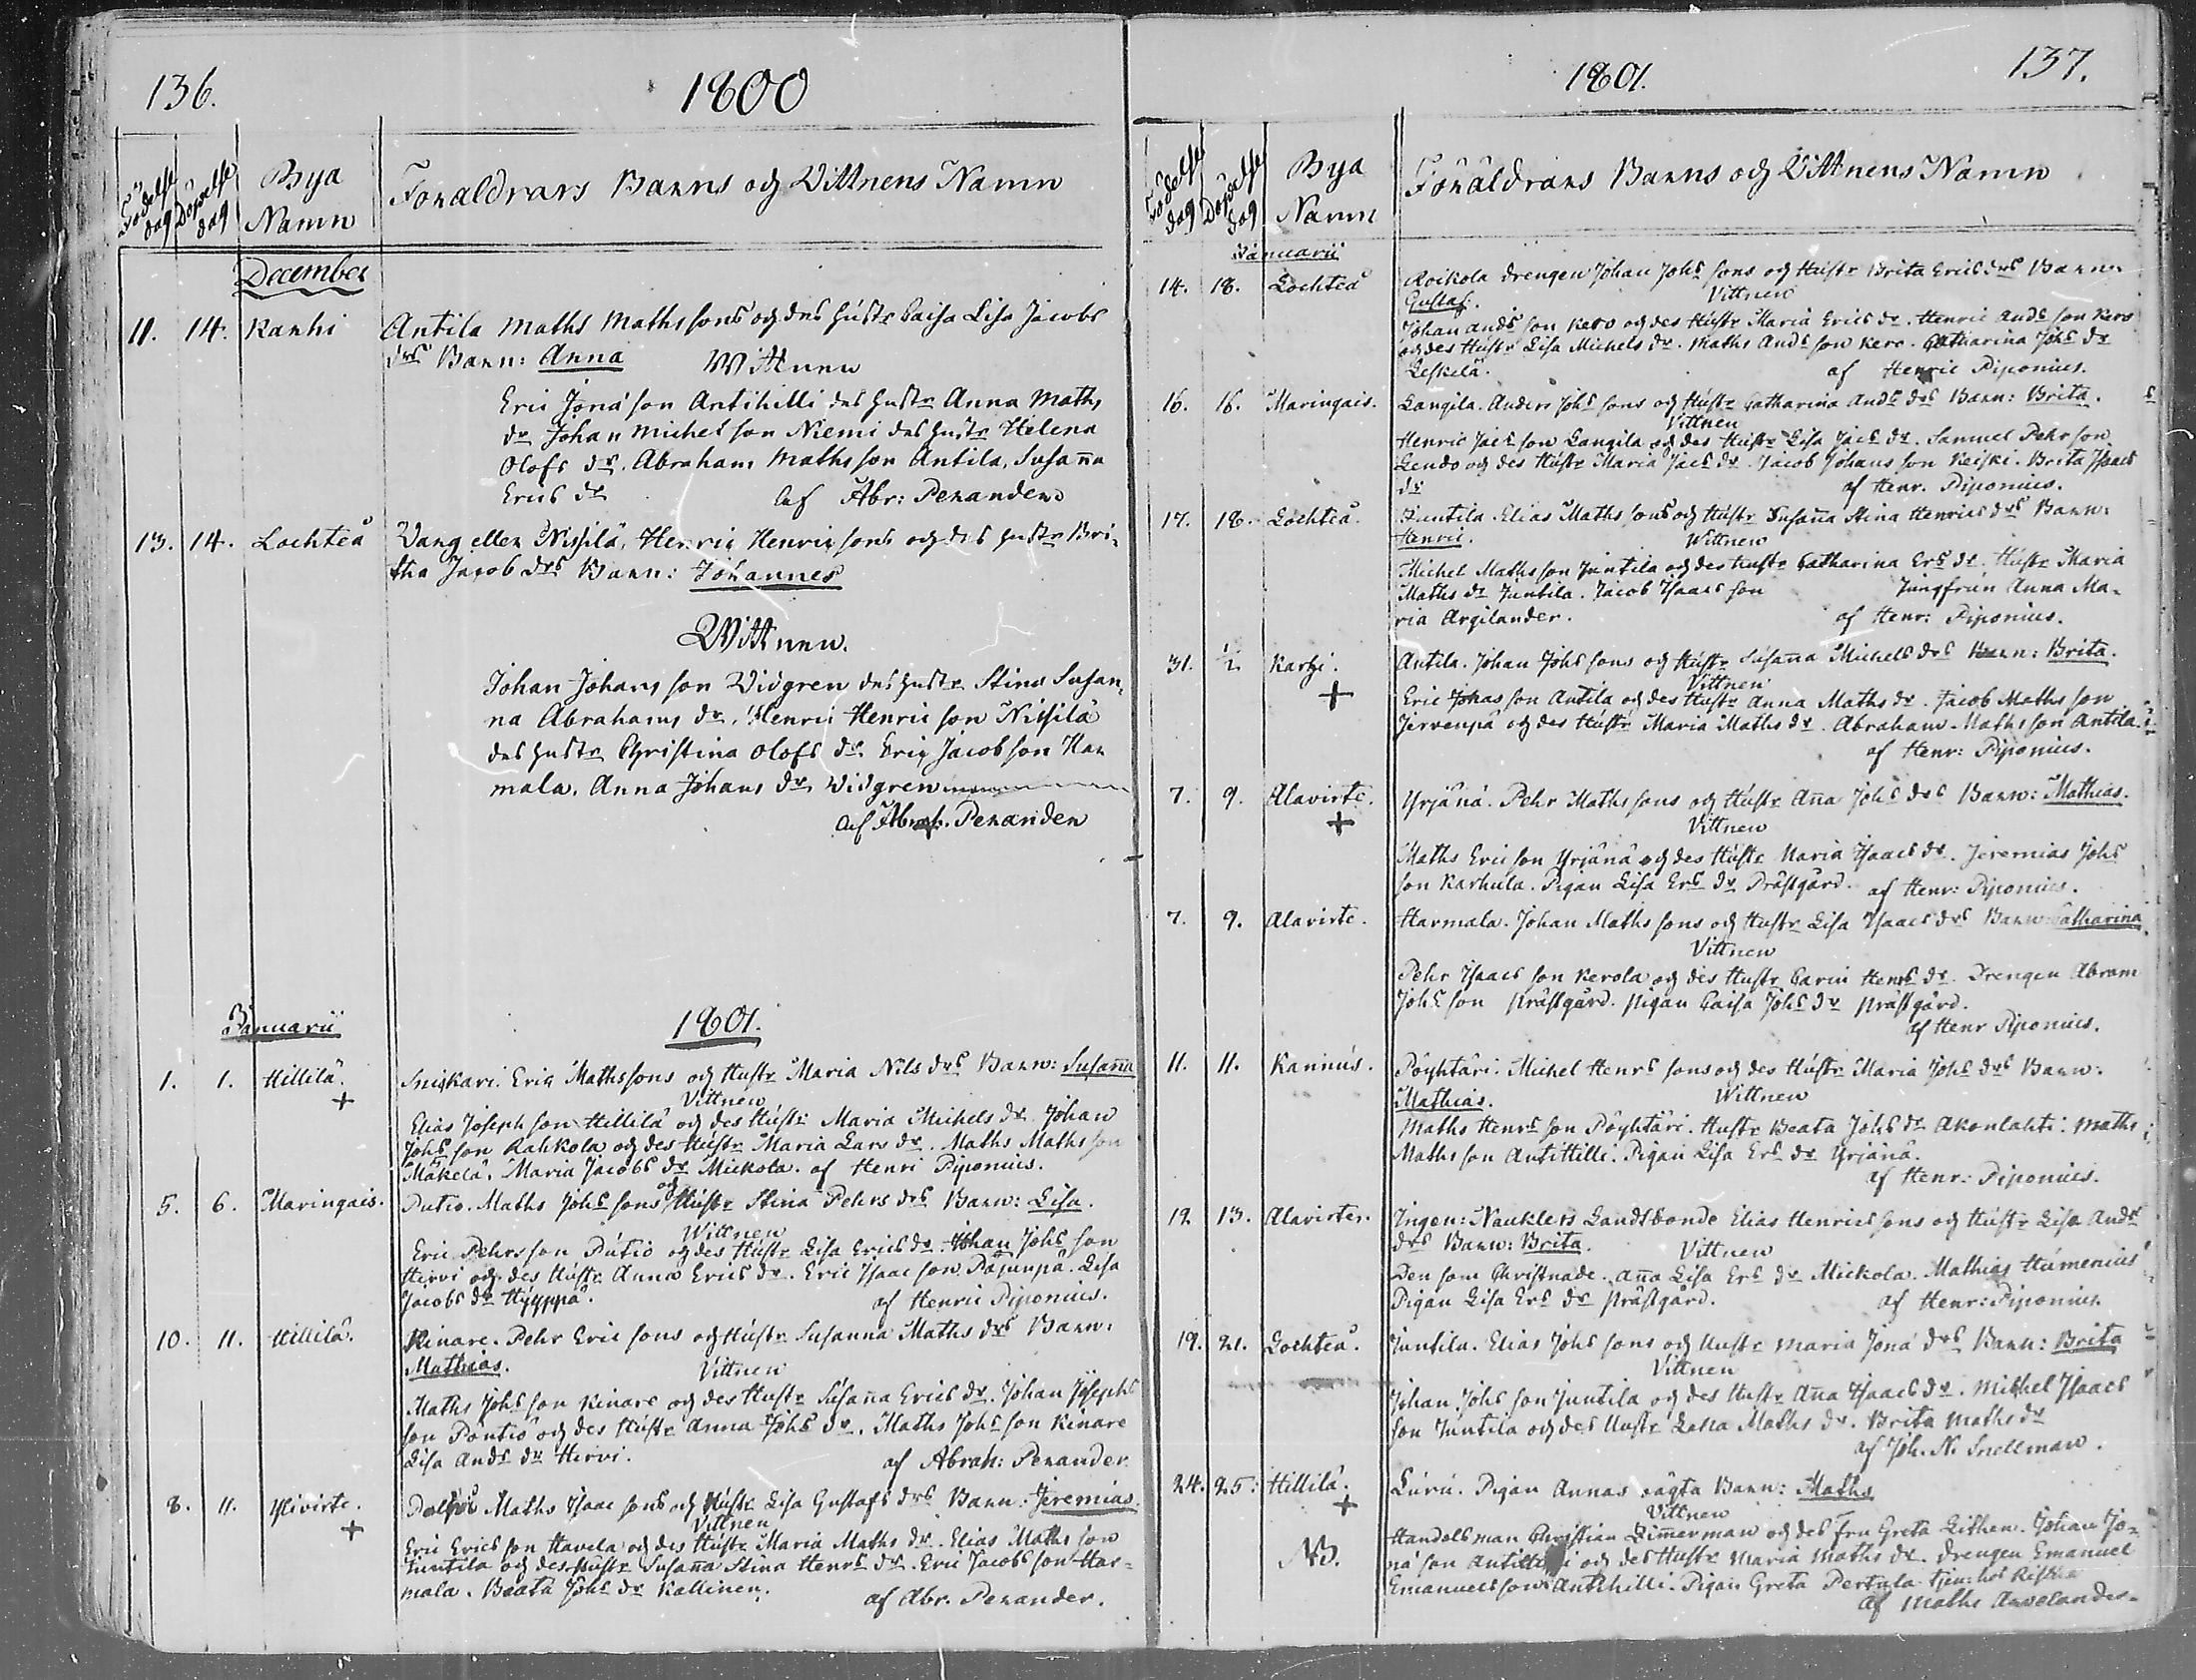 136.
1800
Födelse dag
Döpelse dag
Bya Namn
Foraldrars Barns och Vittnens Namn
December
11. 14. Karhi Antila Maths Mathssons och des hustr Caisa Lisa Jacobs
drs Barn: Anna Wittnen
Eric Jona son Antihilli des hustr Anna Maths
dr Johan Michelson Niemi des hustr Helena
Olofs dr. Abraham Mathsson Antila, Susaña
Erics dr af Abr: Peranden
13. 14. Lochteå Wang eller Nissilä, Henric Henricsons och des hustr Bri-
tha Jacob drs Barn: Johannes
Wittnen.
Johan Johans son Widgren des hustr Stina Susan-
na Abrahams dr, Henric Henric son Nissilä
des hustr Christina Olofs dr. Eric Jacobson Har
mala. Anna Johans dr, Widgren
af Abrah. Perander
Januarii
1801.
1. 1. Hillilä. Sniskari. Eric Mathssons och Hustr Maria Nils drs Barn: Susaña
+
Vittnen
Elias Josephson Hillilä och des Hustr Maria Michels dr. Johan
Johs son Rahkola och des Hustr Maria Lars dr. Maths Mathsson
Mäkelä. Maria Jacobs dr Mickola. af Henric Piponius.
5. 6. Maringais. Putio. Maths Johs sons och Hustr Stina Pehrs drs Barn: Lisa.
Wittnen
Eric Pehrsson Putio och des Hustr Lisa Erics dr. Johan Johs son
Hirvi och des Hustr Anna Erics dr. Eric Isaac son Pajunpä. Lisa
Jacobs dr Hyyppä. af Henric Piponius.
10. 11. Hillilä. Kinare. Pehr Eric sons och Hustr Susanna Maths drs Barn:
Mathias. Vittnen
Maths Johs son Kinare och des Hustr Susaña Erics dr. Johan Josephs
son Pontiö och des Hustr Anna Johs dr. Maths Johs son Kinare
Lisa Ands dr Hirvi. af Abrah: Perander
8. 11. Ylivirte. Maths Isaac sons och Hustr Lisa Gustafs drs Barn: Jeremias.
+
Vittnen
Eric Ericsson Havela och des Hustr Maria Maths dr. Elias Maths son
Juntila och des Hustr Susaña Stina Henrs dr. Eric Jacobs son Har-
mala. Beata Johs dr Kallinen. af Abr. Perander.
1801.
137.
Födelse dag
Döpelse dag
Bya Namn
Föräldrars Barns och Vittnens Namn
Januarii
14. 18. Lochteå Roikola drengen Johan Johs sons och Hustr Brita Erics drs Barn:
Gustaf. Vittnen
Johan Ands son Kero och des Hustr Maria Erics dr. Henric Ands son Kero
och des Hustr Lisa Michels dr. Maths Ands son Kero. Catharina Johs dr
Leskelä. af Henric Piponius.
16. 18. Maringais. Langila. Anders Johs sons och Hustr Catharina Ands drs Barn: Brita.
Vittnen
Henric Jacs son Langila och des Hustr Lisa Jacs dr. Samuel Pehrson
Lendo och des Hustr Maria Jacs dr. Jacob Johans son Keiski. Brita Isacs
dr af Henr. Piponius.
17. 18. Lochteå. Juntila. Elias Maths sons och Hustr Susaña Stina Henrics drs Barn:
Henric. Wittnen
Michel Mathsson Juntila och des Hustr Catharina Ers dr. Hustr Maria
Maths dr Juntila. Jacob Isaacs son Jungfrun Anna Ma-
ria Argilander. af Henr: Piponius.
31. 1/2. Karhi. Antila. Johan Johs sons och Hustr Susaña Michels drs Barn: Brita.
+
Vittnen
Eric Jonas son Antila och des Hustr Anna Maths dr. Jacob Maths son
Jervenpä och des Hustr Maria Maths dr. Abraham Mathsson Antila.
af Henr: Piponius.
7. 9. Alavirte. Yrjänä. Pehr Mathssons och Hustr Aña Johs drs Barn: Mathias.
+
Vittnen
Maths Ericson Yrjänä och des Hustr Maria Isaacs dr. Jeremias Johs
son Karhula. Pigan Lisa Ers dr Prästgård. af Henr: Piponius.
7. 9. Alavirte. Harmala. Johan Maths sons och Hustr Lisa Isaacs drs Barn: Catharina
Vittnen
Pehr Isaacs son Kerola och des Hustr Carin Henrs dr. Drengen Abram
Johs son Prästgård. Pigan Caisa Johs dr Prästgård.
af Henr Piponius.
11. 11. Kannus. Pöyhtäri. Michel Henrs sons och des Hustr Maria Johs drs Barn:
Mathias. Wittnen
Maths Henrs son Pöyhtäri. Hustr Beata Johs dr Akonlahti. Maths
Mathsson Antihilli. Pigan Lisa Ers dr Yrjänä.
af Henr: Piponius.
12 13. Alavirte. Ingen: Nauklers Landtbonde Elias Henrics sons och Hustr Lisa Ands
drs Barn: Brita. Vittnen
Den som Christnade. Aña Lisa Ers dr Mickola. Mathias Humenius
Pigan Lisa Ers dr Prästgård. af Henr: Piponius.
19. 21. Lochteå. Juntila. Elias Johs sons och Hustr Maria Jona drs Barn: Brita
Vittnen
Johan Johs son Juntila och des Hustr Aña Isaacs dr. Michel Isaacs
son Juntila och des Hustr Maths dr. Brita Maths dr
af Joh. N. Snellman.
24. 25. Hillilä. Luru. Pigan Annas oägta Barn: Maths
+
Vittnen
NB. Handelsman Christian Zimmerman och des fru Greta Lithen. Johan Jo-
na son Antihilli och des Hustr Maria Maths dr. Drengen Emanuel
Emanuelsson Antihilli. Pigan Greta Pertula tjen: hos
af Maths